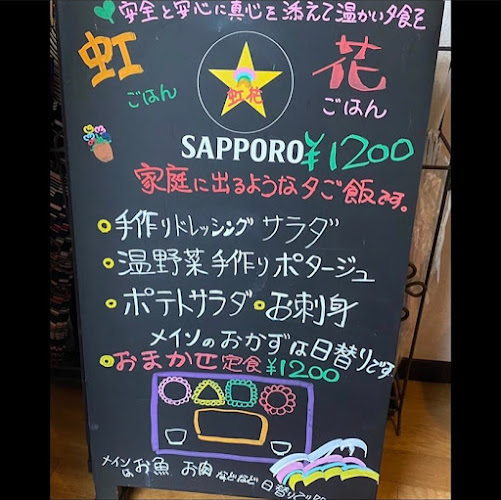 安全と安心に真心を添えて温かい夕食を
虹 花
ごはん ごはん
虹花
SAPPORO ¥1200
家庭に出るような夕ご飯です。
手作りドレッシングサラダ
温野菜手作りポタージュ
ポテトサラダ・お刺身
メインのおかずは日替りです
おまかせ定食¥1200
メインのお魚 お肉 などなど 日替り